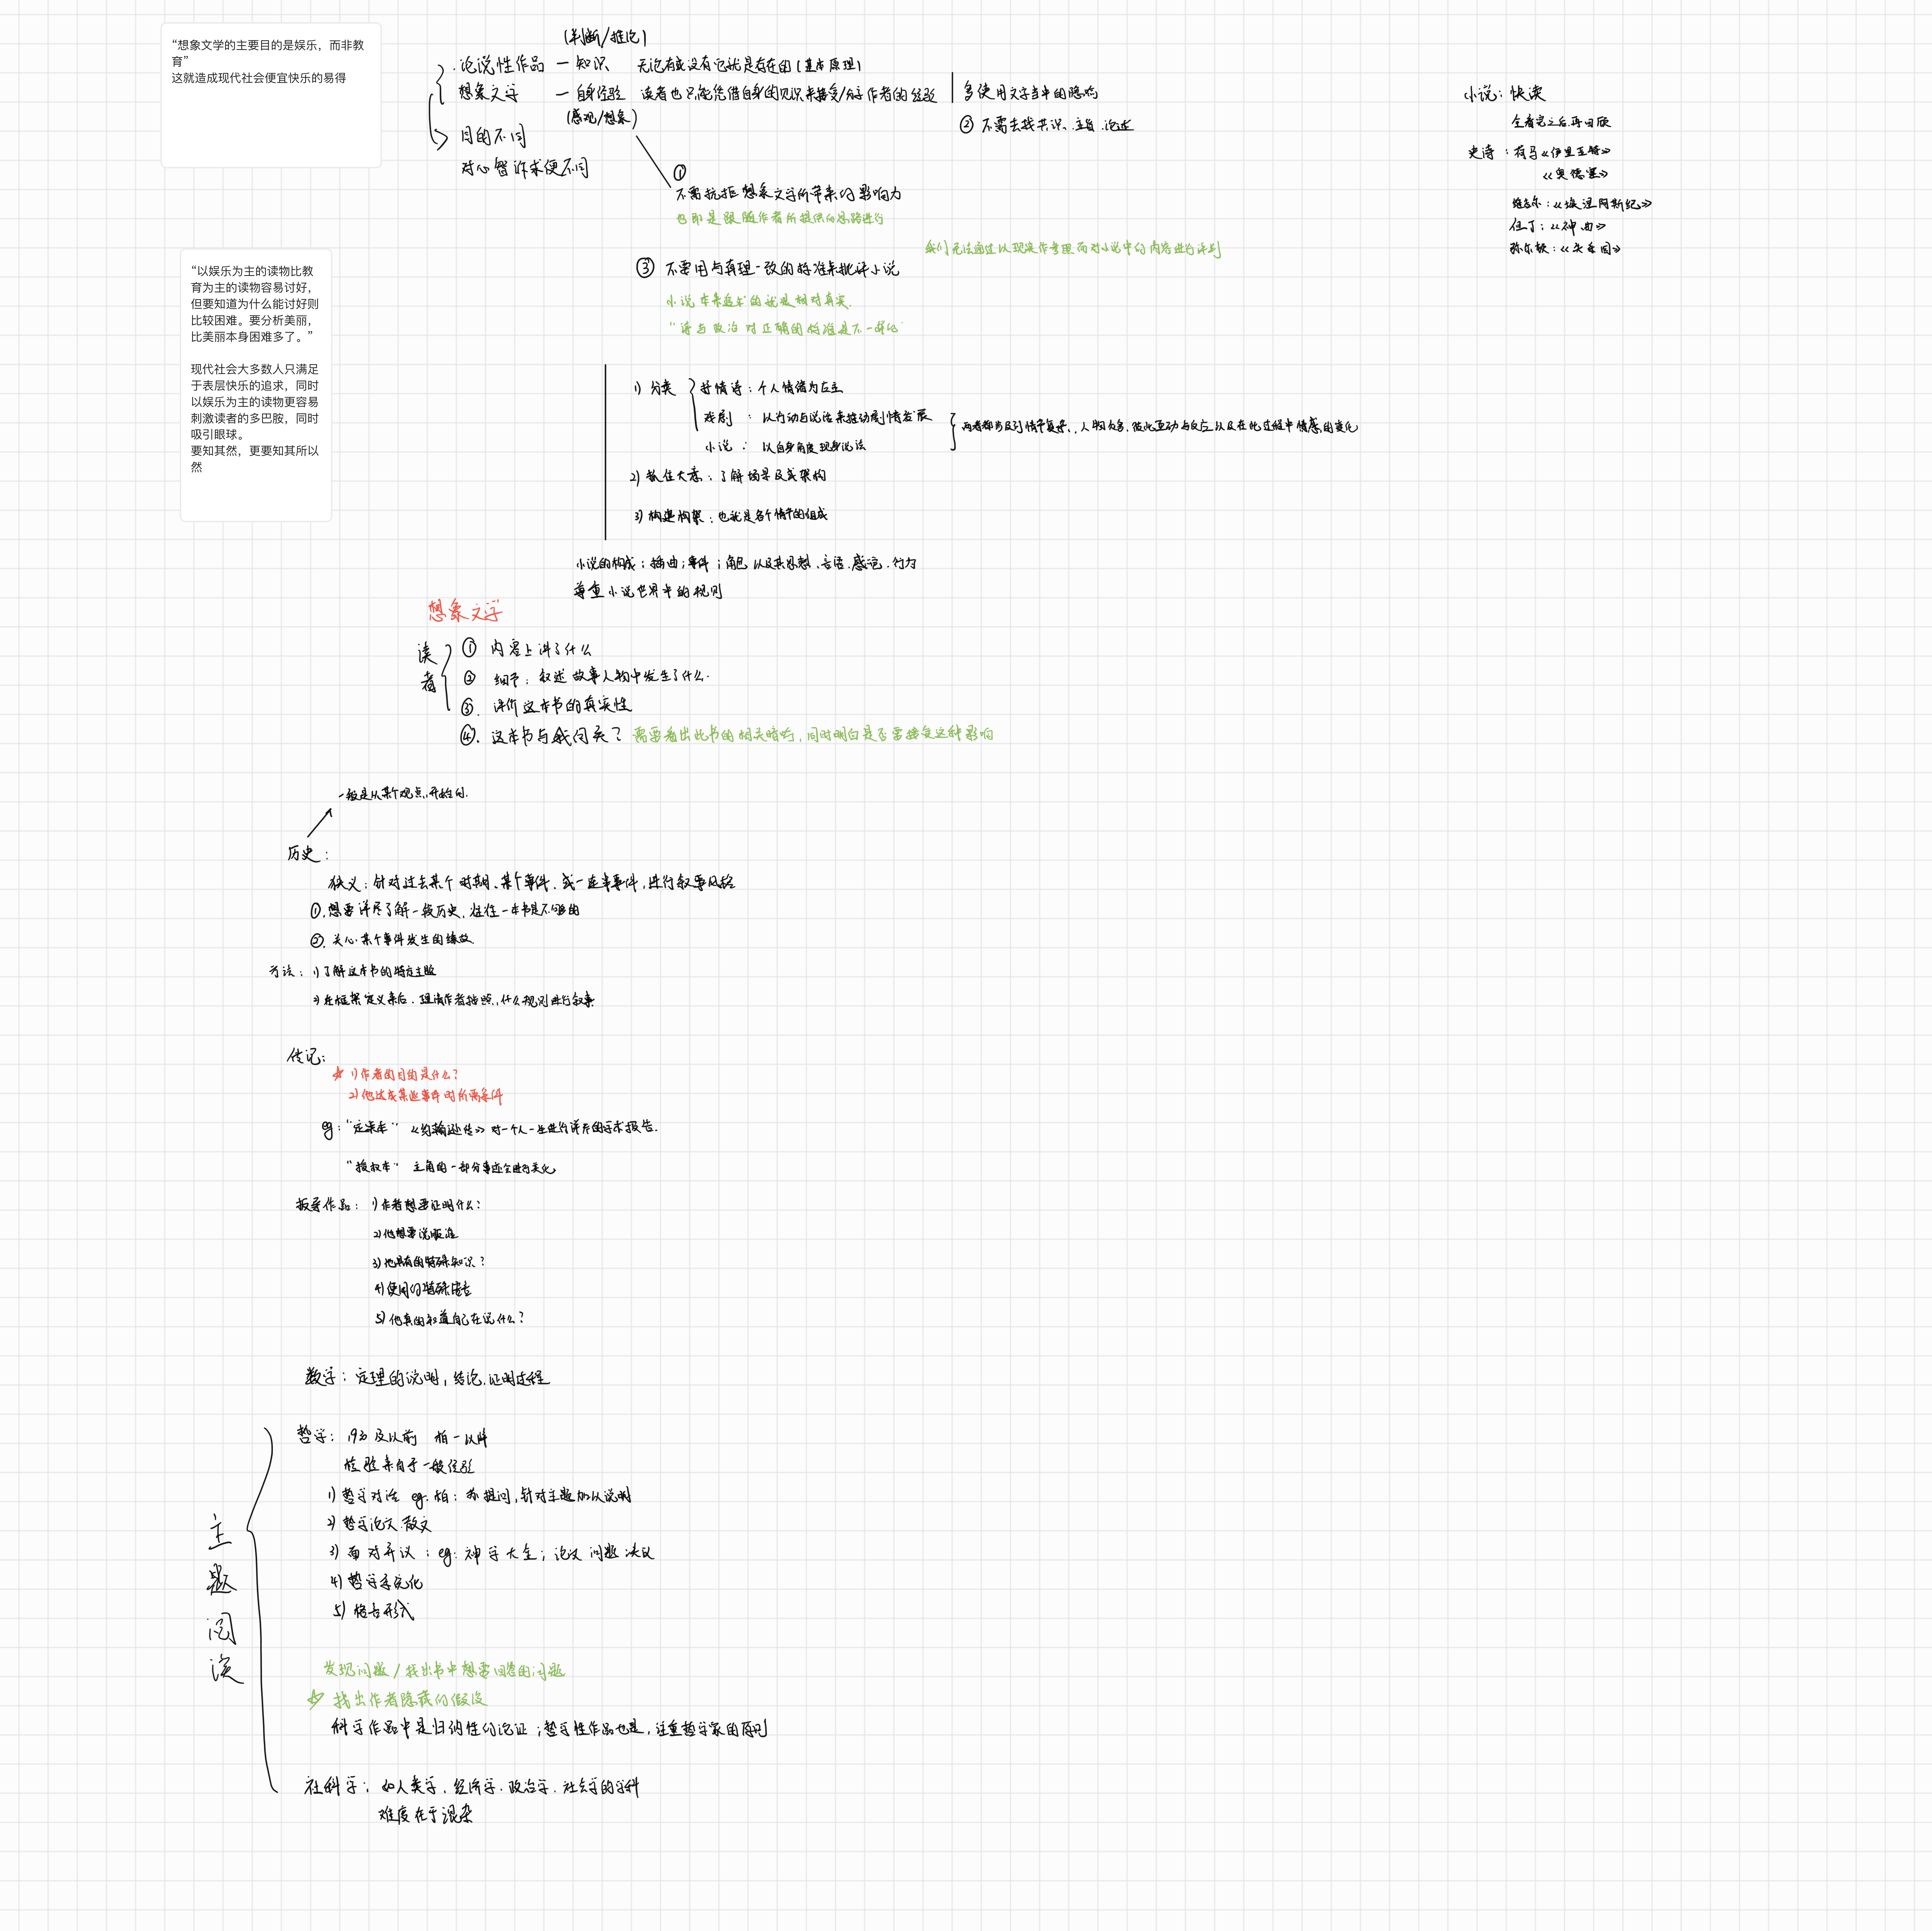 “想象文学的主要目的是娱乐，而非教
育”
这就造成现代社会便宜快乐的易得
(判断/推论)
论说性作品 — 知识 无论有或没有它就是存在的(基本原理)
想象文学 — 自身经验 读者也只能凭借自身的见识来接受/分享作者的经验
(感观/想象)
目的不同
对心智诉求便不同
多使用文字当中的隐喻
② 不需去找共识、主旨、论述
①
不需抗拒想象文学所带来的影响力
也即是跟随作者所提供的思路进行
我们无法通过以现实作考理而对小说中的内容进行评判
③ 不要用与真理一致的标准来批评小说
小说本来追求的就是相对真实.
“诗与政治对正确的标准是不一样的”
小说：快读
全看完之后再回顾
史诗：荷马《伊里亚特》
《奥德塞》
维吉尔：《埃涅阿斯纪》
但丁：《神曲》
弥尔顿：《失乐园》
“以娱乐为主的读物比教
育为主的读物容易讨好，
但要知道为什么能讨好则
比较困难。要分析美丽，
比美丽本身困难多了。”
现代社会大多数人只满足
于表层快乐的追求，同时
以娱乐为主的读物更容易
刺激读者的多巴胺，同时
吸引眼球。
要知其然，更要知其所以
然
1) 分类
抒情诗：个人情绪为主
戏剧：以行动与说话来推动剧情发展
小说：以自身角度现身说法
两者都涉及到情节复杂、人物众多、彼此互动与反应以及在此过程中情感的变化
2) 抓住大意：了解场景及或架构
3) 构建构架：也就是各个情节的组成
小说的构成：插曲；事件；角色以及其思想、言语、感觉、行为
尊重小说世界中的规则
想象文学
读者
① 内容上讲了什么
② 细节：叙述故事人物中发生了什么.
③. 评价这本书的真实性
④. 这本书与我何关？需要看出此书的相关暗喻，同时明白是否需接受这种影响
一般是从某个观点开始的.
历史：
狭义：针对过去某个时期、某个事件、或一连串事件，进行叙事风格
①. 想要详尽了解一段历史，往往一本书是不够的
②. 关心某个事件发生的缘故
方法：1) 了解这本书的特定主题
2) 在框架定义亲后. 理清作者按照什么规则进行叙事.
传记：
☆ 1) 作者的目的是什么？
2) 他达成某些事件时所需条件
eg：“定案本”《约翰逊传》对一个人一生进行详尽的学术报告.
“授权本” 主角的一部分事迹会进行美化
报导作品：1) 作者想要证明什么？
2) 他想要说服谁
3) 他具有的特殊知识？
4) 使用的特殊语言
5) 他真的知道自己在说什么？
数学：定理的说明，结论.证明过程
主题阅读
哲学：1930及以前 柏一以降
检验来自于一般经验
1) 哲学对话 eg. 柏：苏提问，针对主题加以说明
2) 哲学论文.散文
3) 面对异议：eg：神学大全；论文 问题 决议
4) 哲学系统化
5) 格言形式
发现问题/找出书中想要回答的问题
☆ 找出作者隐藏的假设
科学作品中是归纳性的论证；哲学性作品也是，注重哲学家的原则
社科学：如人类学、经济学、政治学、社会学的学科
难度在于混杂